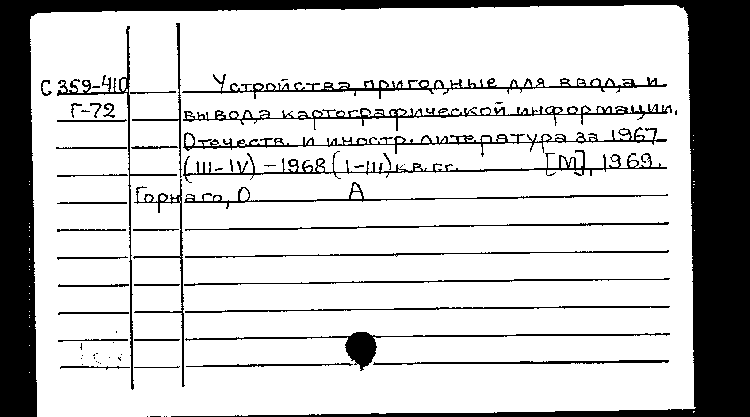 С 359-410 Устройства, пригодные для ввода и
Г-72 вывода картографической информации.
Отечеств. и иностр. литература за 1967
(III-IV) - 1968 (I-III) кв. гг. [М], 1969.
Горнаго, О А